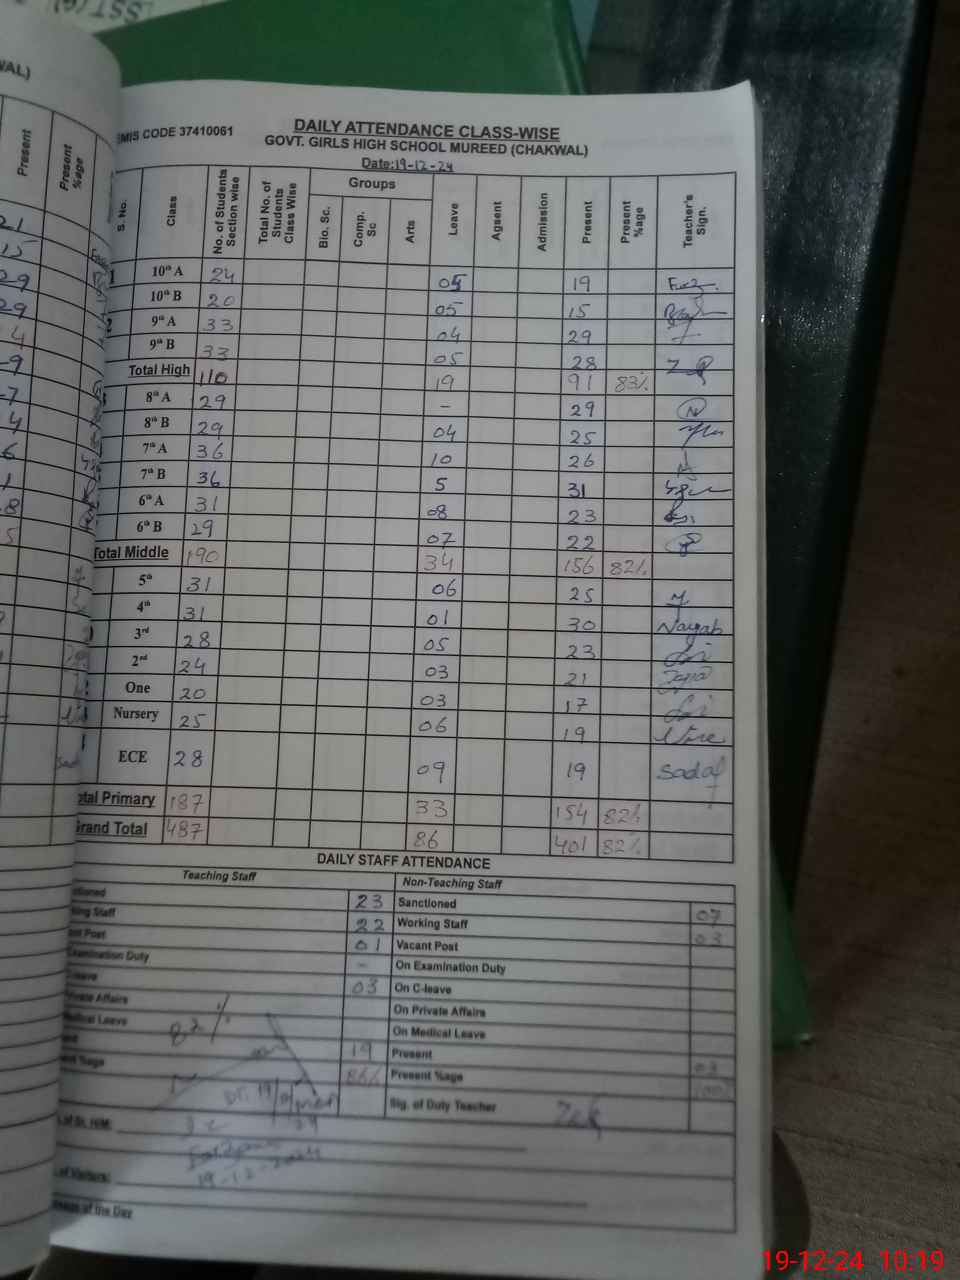 SST(G)
WAL)
Present
Present %age
21
15
29
29
4
EMIS CODE 37410061
DAILY ATTENDANCE CLASS-WISE
GOVT. GIRLS HIGH SCHOOL MUREED (CHAKWAL)
Date:19-12-24
S. No. Class No. of Students Section wise Total No. of Students Class Wise Groups Bio. Sc. Comp. Sc Arts Leave Agsent Admission Present Present %age Teacher's Sign.
1 10th A 24 05 19
10th B 20 05 15
2 9th A 33 04 29
9th B 33 05 28
Total High 110 19 91 83%
8th A 29 - 29
8th B 29 04 25
7th A 36 10 26
7th B 36 5 31
6th A 31 08 23
6th B 29 07 22
Total Middle 190 34 156 82%
5th 31 06 25
4th 31 01 30 Nayab
3rd 28 05 23
2nd 24 03 21
One 20 03 17
Nursery 25 06 19
ECE 28 09 19 Sadaf
otal Primary 187 33 154 82%
Grand Total 487 86 401 82%
DAILY STAFF ATTENDANCE
Teaching Staff Non-Teaching Staff
ctioned 23 Sanctioned 07
king Staff 22 Working Staff 03
ant Post 01 Vacant Post
Examination Duty - On Examination Duty
C-leave 03 On C-leave
rivate Affairs On Private Affairs
edical Leave On Medical Leave
ent 19 Present 03
ent %age 86% Present %age 100%
82%
Sig. of Duty Teacher
. of Sr. H/M:
19-12-2024
. of Visitors:
ess of the Day
19-12-24 10:19